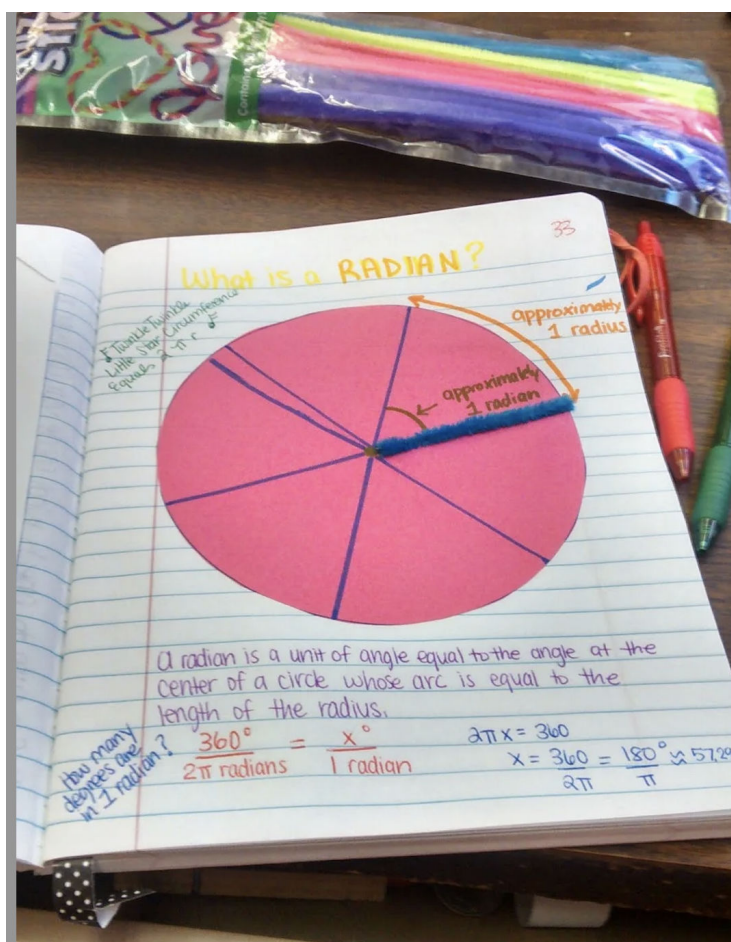 Love
33
What is a RADIAN?
Twinkle Twinkle
Little Star Circumference
Equals 2 π r
approximately
1 radius
approximately
1 radian
A radian is a unit of angle equal to the angle at the
center of a circle whose arc is equal to the
length of the radius.
How many
degrees are
in 1 radian?
360° / 2π radians = x° / 1 radian
2πx = 360
x = 360 / 2π = 180° / π ≈ 57.29